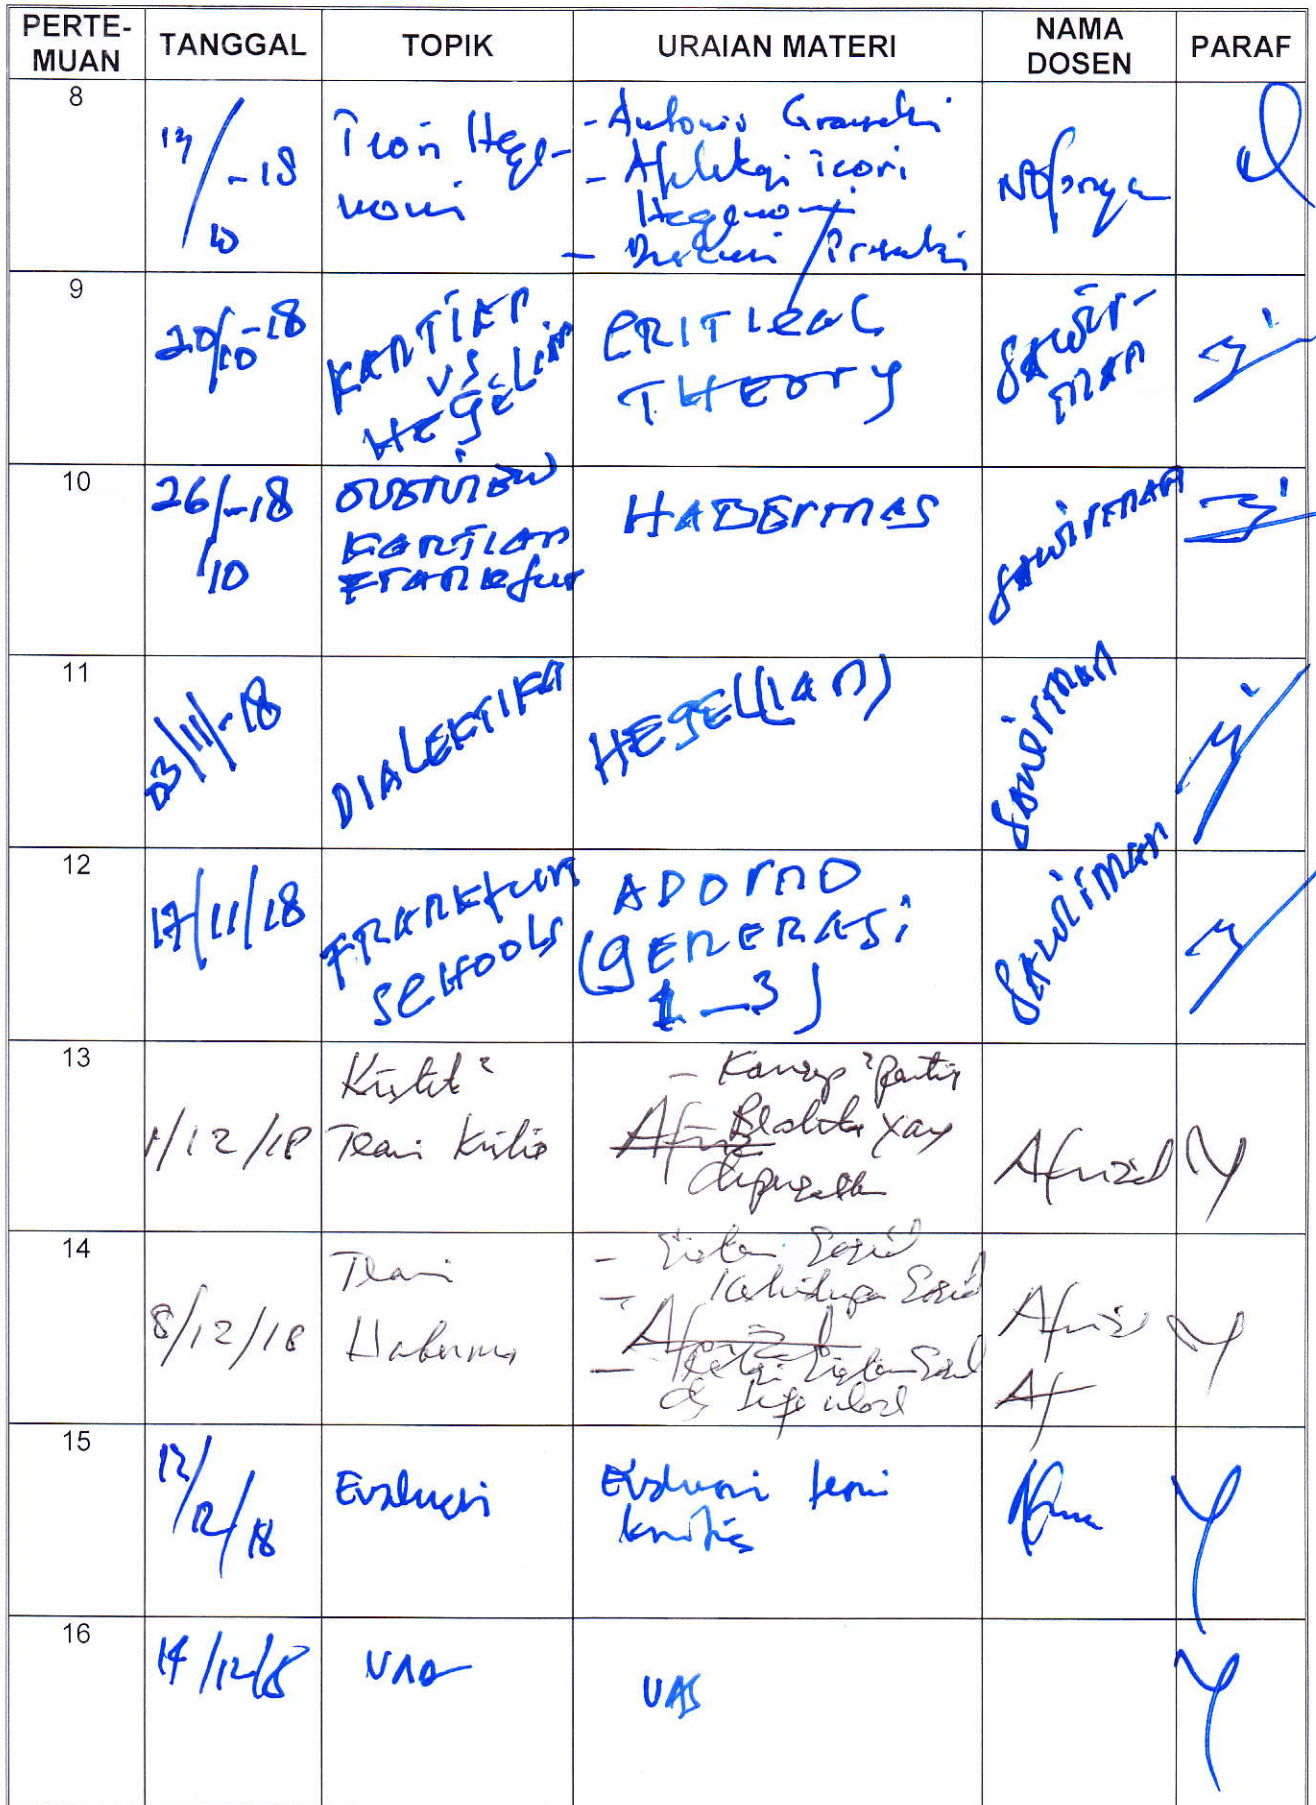 PERTE-
MUAN
TANGGAL
TOPIK
URAIAN MATERI
NAMA
DOSEN
PARAF
8
-18
10
Teori Hege-
moni
- Antonio Gramsci
- Aplikasi teori
Hegemoni
-
9
20/10-18
KANTIAN
VS
HEGELIAN
CRITICAL
THEORY
SAWIR-
MAN
10
26/-18
/10
OVERVIEW
KANTIAN
FRANKfur
HABERMAS
SAWIRMAN
11
03/11/-18
DIALEKTIKA
HEGEL(IAN)
SAWIRMAN
12
17/11/18
FRANKfurt
SCHOOLS
ADORNO
(GENERASI
1-3)
SAWIRMAN
13
1/12/18
Teori Kritis
- Konsep
Afrizal
14
8/12/18
Teori
Habermas
- Sistem Sosial
- Kehidupan Sosial
-
Afrizal
Af
15
12/12/18
Evaluasi
Evaluasi teori
kritis
16
14/12/18
UAS
UAS